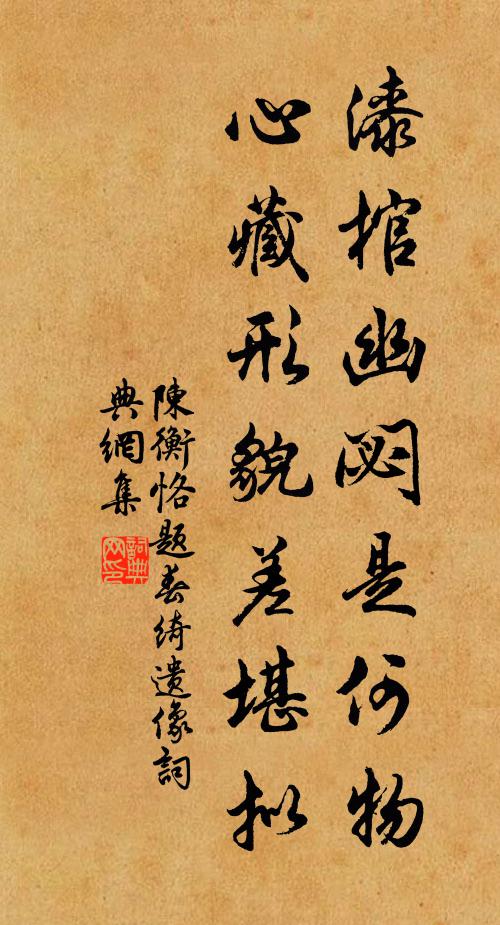 漆棺幽閟是何物
心藏形貌差堪擬
陳衡恪題春綺遺像詞
典網集
詞典網印